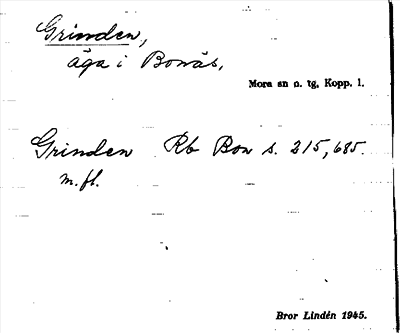 Grinden,
äga i Bonäs,
Mora sn o. tg, Kopp. l.
Grinden Rb Bon s. 215, 685.
m.fl.
Bror Lindén 1945.